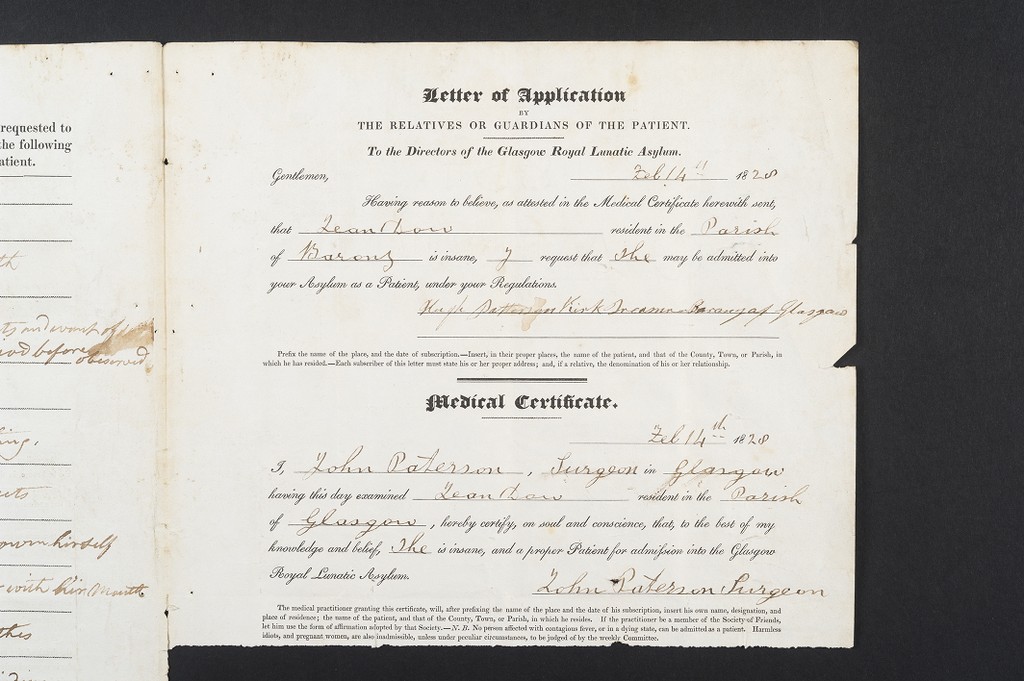 requested to
the following
atient.
th
ts and want of
iod before observed
ing.
own himself
with his Mouth
this
Letter of Application
BY
THE RELATIVES OR GUARDIANS OF THE PATIENT.
To the Directors of the Glasgow Royal Lunatic Asylum.
Feb 14th 1828
Gentlemen,
Having reason to believe, as attested in the Medical Certificate herewith sent,
that Jean Dow resident in the Parish
of Barony is insane, I request that She may be admitted into
your Asylum as a Patient, under your Regulations.
Hugh Patterson Kirk Barony of Glasgow
Prefix the name of the place, and the date of subscription.—Insert, in their proper places, the name of the patient, and that of the County, Town, or Parish, in
which he has resided.—Each subscriber of this letter must state his or her proper address; and, if a relative, the denomination of his or her relationship.
Medical Certificate.
Feb 14th 1828
I, John Paterson, Surgeon in Glasgow
having this day examined Jean Dow resident in the Parish
of Glasgow, hereby certify, on soul and conscience, that, to the best of my
knowledge and belief, She is insane, and a proper Patient for admission into the Glasgow
Royal Lunatic Asylum.
John Paterson Surgeon
The medical practitioner granting this certificate, will, after prefixing the name of the place and the date of his subscription, insert his own name, designation, and
place of residence; the name of the patient, and that of the County, Town, or Parish, in which he resides. If the practitioner be a member of the Society of Friends,
let him use the form of affirmation adopted by that Society.—N. B. No person affected with contagious fever, or in a dying state, can be admitted as a patient. Harmless
idiots, and pregnant women, are also inadmissible, unless under peculiar circumstances, to be judged of by the weekly Committee.